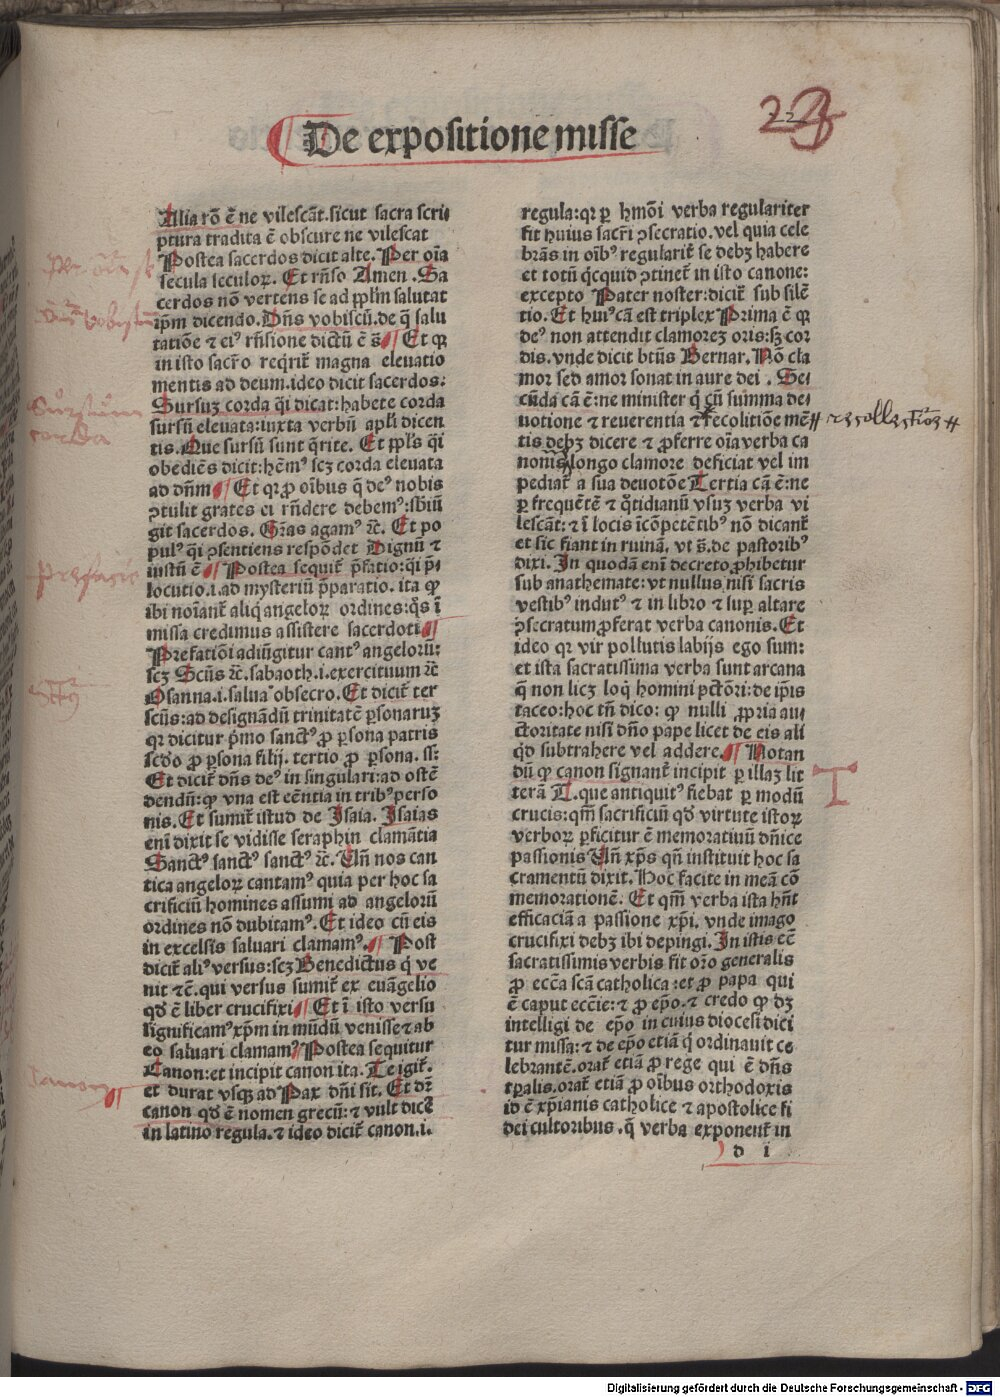 De expositione misse
23
Alia rō ē ne vilescāt.sicut sacra scri-
ptura tradita ē obscure ne vilescat
Postea sacerdos dicit alte. Per oīa
secula seculoꝝ. Et rn̄so Amen .Sa
cerdos nō vertens se ad ppl̄m salutat
ip̄m dicendo. Dn̄s vobiscū.de q̄ salu
tatiōe ⁊ ei⁹ rn̄sione dictū ē s̄ Et qꝛ
in isto sacr̄o reqrit̄ magna eleuatio
mentis ad deum.ideo dicit sacerdos.
Sursuꝫ corda q̄i dicat:habete corda
sursū eleuata:iuxta verbū apl̄i dicen
tis. Que sursū sunt q̄rite. Et ppl̄s q̄i
obediēs dicit:hēm⁹ scꝫ corda eleuata
ad dn̄m Et qꝛ ꝓ oībus q̄ de⁹ nobis
ꝯtulit grates ei rn̄dere debem⁹:sbiū
git sacerdos. Gr̄as agam⁹ ⁊c̄. Et po
pul⁹ q̄i ꝯsentiens respōdet Dignū ⁊
iustū ē Postea sequit̄ p̄fatio:q̄i p̄-
locutio.i.ad mysteriū p̄paratio. ita ꝙ
ibi noīant̄ aliq̄ angeloꝝ ordines:q̄s ī
missa credimus assistere sacerdoti
Prefatiōi adiūgitur cant⁹ angeloꝝ:
scꝫ Sc̄us ⁊c̄. sabaoth.i.exercituum ⁊c̄
Osanna.i.salua obsecro. Et dicit̄ ter
sc̄us:ad designādū trinitatē ꝑsonaruꝫ
qꝛ dicitur p̄mo sanct⁹ ꝓ ꝑsona patris
sc̄do ꝓ ꝑsona filij. tertio ꝓ ꝑsona. ss:
Et dicit̄ dn̄s de⁹ in singulari:ad ostē
dendū:ꝙ vna est eēntia in trib⁹ perso
nis. Et sumit̄ istud de Isaia. Isaias
eni dixit se vidisse seraphin clamātia
Sanct⁹ sanct⁹ sanct⁹ ⁊c̄. Un̄ nos can
tica angeloꝝ cantam⁹ quia per hoc sa
crificiū homines assumi ad angelorū
ordines nō dubitam⁹. Et ideo cū eis
in excelsis saluari clamam⁹. Post
dicit̄ ali⁹ versus:scꝫ Benedictus q̄ ve
nit ⁊c̄. qui versus sumit̄ ex euāgelio
qđ ē liber crucifixi Et ī isto versu
significam⁹ xp̄m in mūdū venisse ⁊ ab
eo saluari clamam⁹ Postea sequitur
Canon:et incipit canon ita. Te igit̄.
et durat vsqꝫ ad Pax dn̄i sit. Et dr̄
canon qđ ē nomen grecū: ⁊ vult dicē
in latino regula.⁊ ideo dicit̄ canon.i.
regula:qꝛ ꝑ hm̄ōi verba regulariter
fit huius sacr̄i ꝯsecratio.vel quia cele
brās in oīb⁹ regularit̄ se debꝫ habere
et totū qcquid ꝯtinet̄ in isto canone:
excepto Pater noster:dicit̄ sub silē
tio. Et hui⁹ cā est triplex Prima ē qꝛ
de⁹ non attendit clamoreꝫ oris:sꝫ cor
dis. vnde dicit btūs Bernar. Nō cla
mor sed amor sonat in aure dei . Se-
cūda cā ē:ne minister q̄ cū summa de-
uotione ⁊ reuerentia ⁊ recolitiōe mē
tis debꝫ dicere ⁊ ꝓferre oīa verba ca
nonis longo clamore deficiat vel im
pediat̄ a sua deuotōe Tertia cā ē:ne
ꝑ frequētē ⁊ q̄tidianū vsuꝫ verba vi
lescāt: ⁊ ī locis īcōpetētib⁹ nō dicant̄
et sic fiant in ruinā. vt s̄.de pastorib⁹
dixi. In quodā eni decreto ꝓhibetur
sub anathemate: vt nullus nisi sacris
vestib⁹ indut⁹ ⁊ in libro ⁊ suꝑ altare
ꝯsecratum ꝓferat verba canonis. Et
ideo qꝛ vir pollutis labijs ego sum:
et ista sacratissima verba sunt arcana
q̄ non licꝫ loq̄ homini pctōri:de ip̄is
taceo:hoc tn̄ dico: ꝙ nulli ꝓpria au-
ctoritate nisi dn̄o pape licet de eis ali
qđ subtrahere vel addere. Notan
dū ꝙ canon signant̄ incipit ꝑ illaꝫ lit
terā T.que antiquit⁹ fiebat ꝑ modū
crucis:qm̄ sacrificiū qđ virtute istoꝝ
verboꝝ ꝑficitur ē memoratiuū dn̄ice
passionis Un̄ xp̄s qn̄ instituit hoc sa
cramentū dixit. Hoc facite in meā cō
memorationē. Et qm̄ verba ista hn̄t
efficaciā a passione xp̄i. vnde imago
crucifixi debꝫ ibi depingi. In istis eī
sacratissimis verbis fit oīo generalis
ꝓ ecc̄a sc̄a catholica :et ꝓ papa qui
ē caput ecc̄ie: ⁊ ꝓ ep̄o. ⁊ credo ꝙ dꝫ
intelligi de ep̄o in cuius diocesi dici
tur missa: ⁊ de ep̄o etiā q̄ ordinauit ce
lebrantē.orat̄ etiā ꝓ rege qui ē dn̄s
tꝑalis.orat̄ etiā ꝓ oībus orthodoxis
id ē xp̄ianis catholice ⁊ apostolice fi
dei cultoribus .q̄ verba exponent̄ in
d i
corda
prefacio
T
Digitalisierung gefördert durch die Deutsche Forschungsgemeinschaft - DFG